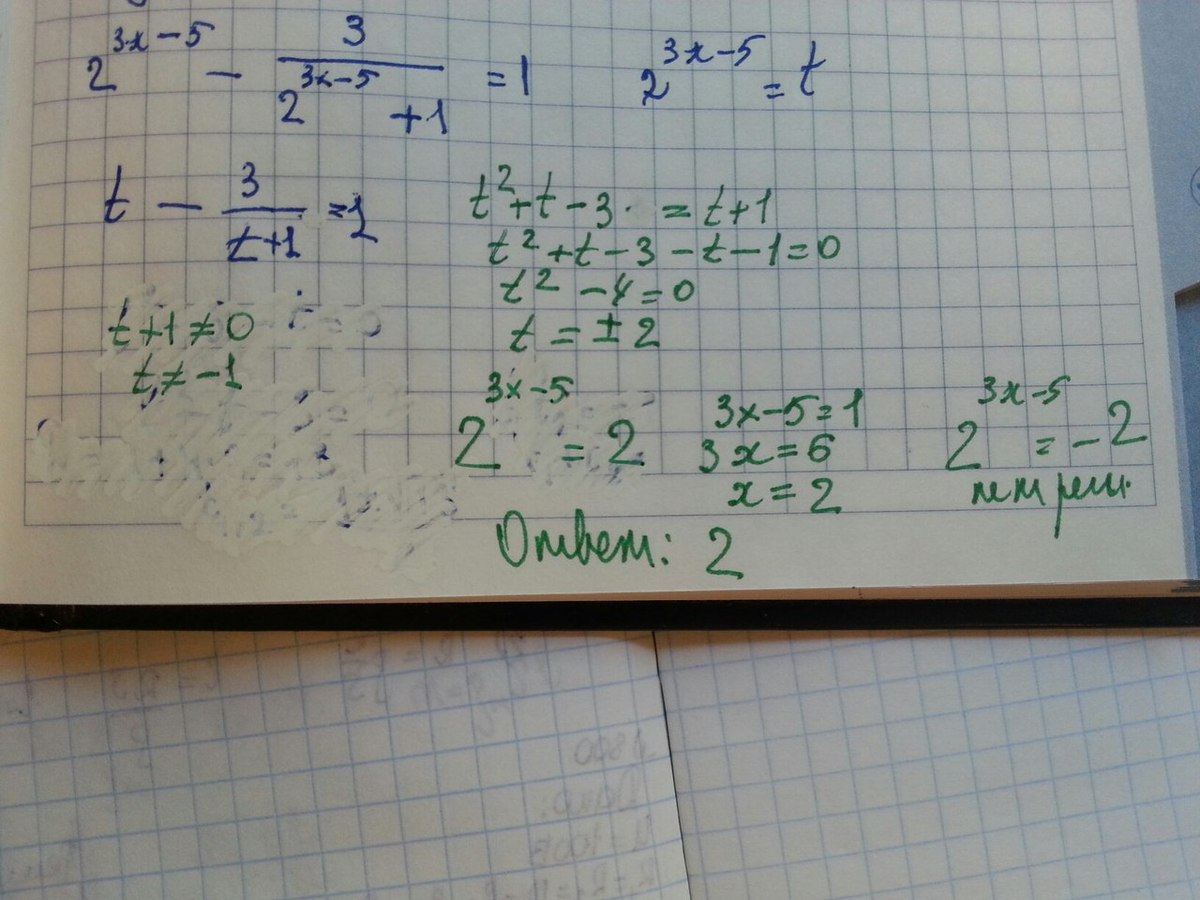 2^{3x-5} - \frac{3}{2^{3x-5}+1} = 1 2^{3x-5} = t
t - \frac{3}{t+1} = 1
t+1≠0
t≠-1
t²+t-3 = t+1
t²+t-3-t-1=0
t²-4=0
t=±2
2^{3x-5} = 2
3x-5=1
3x=6
x=2
2^{3x-5} = -2
нет реш.
Ответ: 2
Дано: